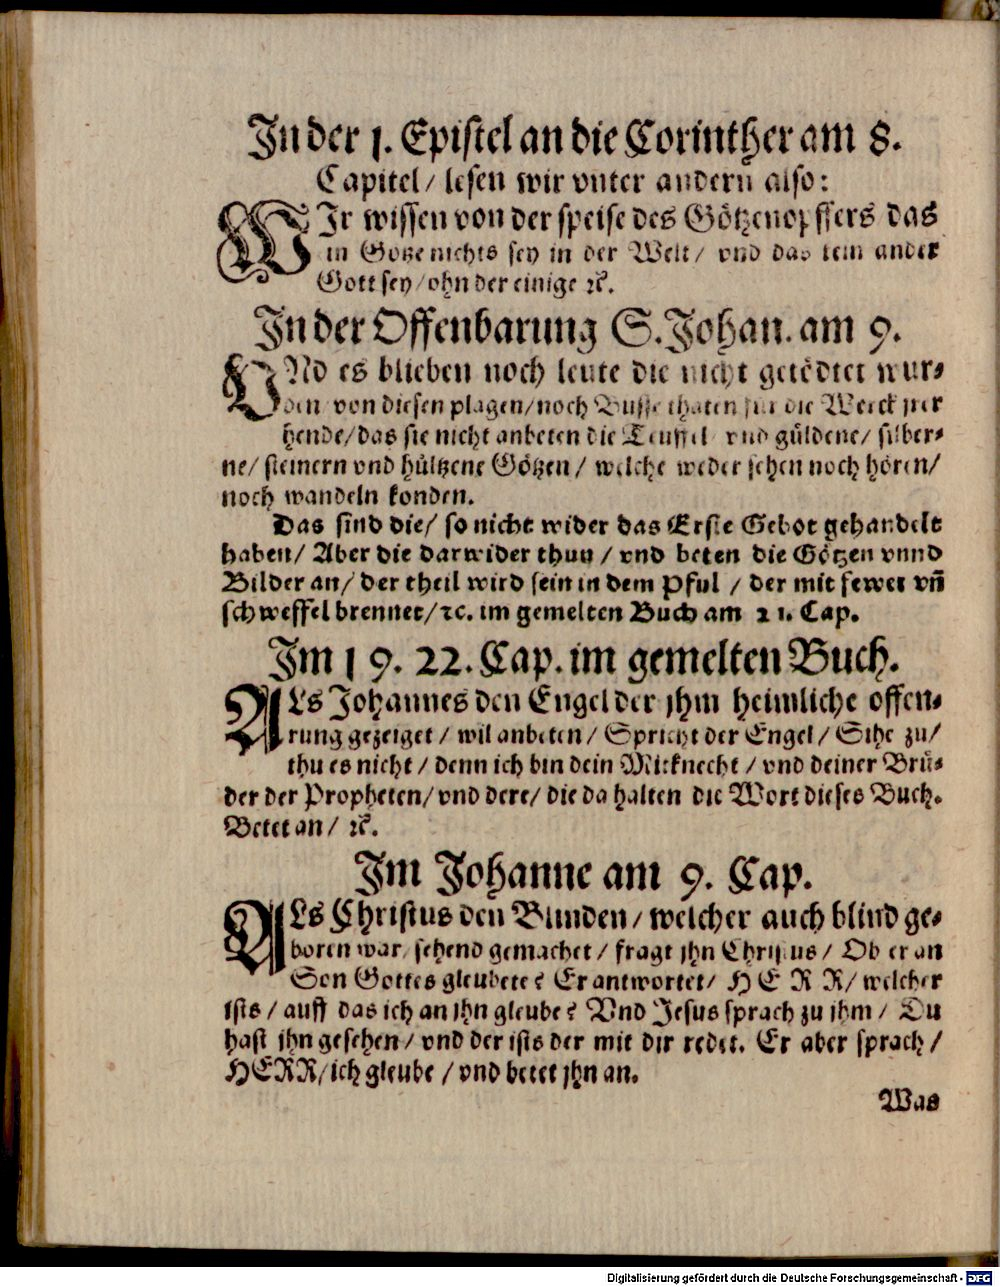 In der 1. Epistel an die Corinther am 8.
Capitel/ lesen wir vnter andern also:
WIr wissen von der speise des Götzenopffers das
ein Götze nichts sey in der Welt/ vnd das kein ander
Gott sey/ ohn der einige ꝛc.
In der Offenbarung S. Johan. am 9.
VNd es blieben noch leute die nicht getödtet wur-
den/ von diesen plagen/ noch Busse thaten für die Werck jrer
hende/ das sie nicht anbeten die Teuffel/ vnd güldene/ silber-
ne/ steinern vnd hültzene Götzen/ welche weder sehen noch hören/
noch wandeln konden.
Das sind die/ so nicht wider das Erste Gebot gehandelt
haben/ Aber die darwider thun/ vnd beten die Götzen vnnd
Bilder an/ der theil wird sein in dem Pful/ der mit fewer vñ
schweffel brennet/ ꝛc. im gemelten Buch am 21. Cap.
Im 19. 22. Cap. im gemelten Buch.
ALs Johannes den Engel der jhm heimliche offen-
rung gezeiget/ wil anbeten/ Spricht der Engel/ Sihe zu/
thu es nicht/ denn ich bin dein Mitknecht/ vnd deiner Brü-
der der Propheten/ vnd dere/ die da halten die Wort dieses Buch.
Betet an/ ꝛc.
Im Johanne am 9. Cap.
ALs Christus den Blinden/ welcher auch blind ge-
boren war/ sehend gemachet/ fragt jhn Christus/ Ob er an
Son Gottes gleubete? Er antwortet/ HERR/ welcher
ists/ auff das ich an jhn gleube? Vnd Jesus sprach zu jhm/ Du
hast jhn gesehen/ vnd der ists der mit dir redet. Er aber sprach/
HERR/ ich gleube/ vnd betet jhn an.
Was
Digitalisierung gefördert durch die Deutsche Forschungsgemeinschaft - DFG